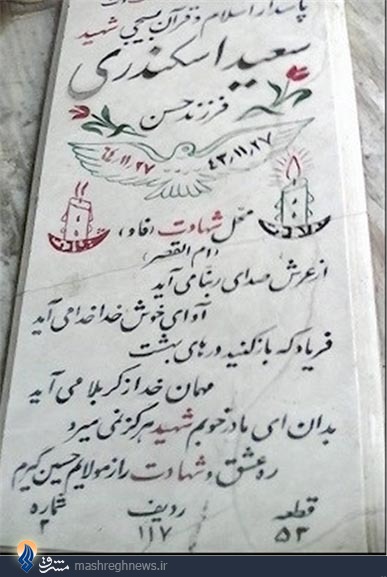 پاسدار اسلام و قرآن بسیجی شهید
سعید اسکندری
فرزند حسن
۶۴٫۱۱٫۲۷ ۴۳٫۱۱٫۲۷
ولادت
شهادت
محل شهادت (فاو)
(ام القصر)
از عرش صدای ربنا می آید
آوای خوش خدا خدا می آید
فریاد که باز کنید درهای بهشت
مهمان خدا ز کربلا می آید
بدان ای مادر خوبم شهید هرگز نمی میرد
ره عشق و شهادت را ز مولایم حسین گیرم
قطعه ردیف شماره
۵۳ ۱۱۷ ۲
مشرق
mashreghnews.ir